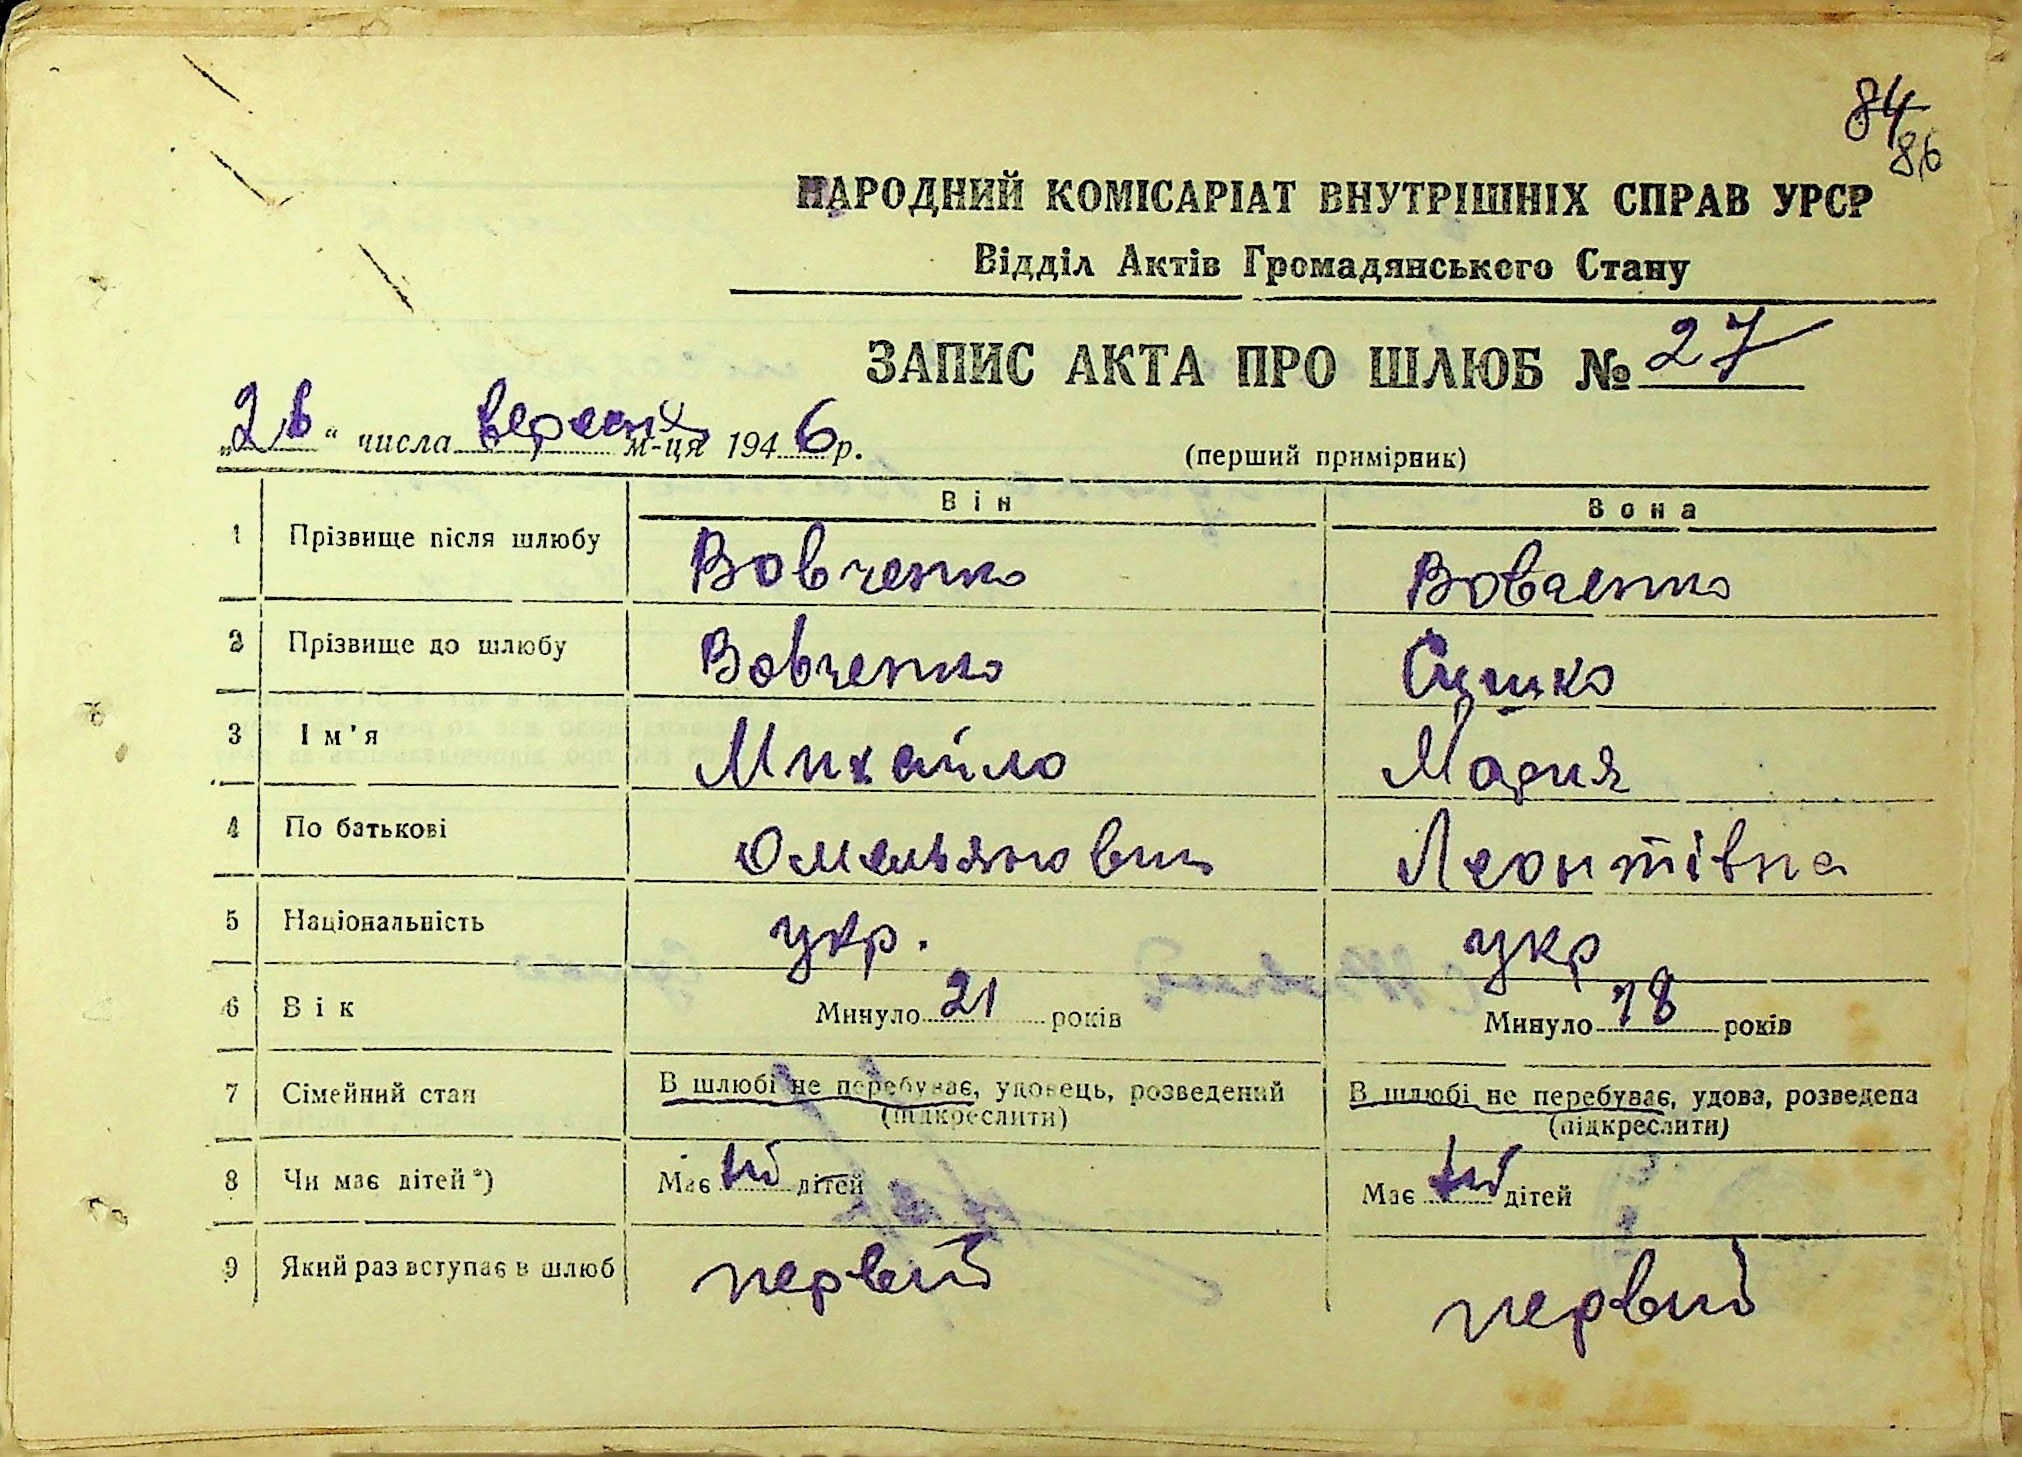 84
86
НАРОДНИЙ КОМІСАРІАТ ВНУТРІШНІХ СПРАВ УРСР
Відділ Актів Громадянського Стану
ЗАПИС АКТА ПРО ШЛЮБ № 27
„26“ числа вересня м-ця 1946 р.
(перший примірник)
Він Вона
1 Прізвище після шлюбу Вовченко Вовченко
2 Прізвище до шлюбу Вовченко Сушко
3 Ім'я Михайло Мария
4 По батькові Омельянович Леонтівна
5 Національність укр. укр
6 Вік Минуло 21 років Минуло 18 років
7 Сімейний стан В шлюбі не перебуває, удовець, розведений В шлюбі не перебуває, удова, розведена
(підкреслити) (підкреслити)
8 Чи має дітей*) Має ні дітей Має ні дітей
9 Який раз вступає в шлюб первий первий